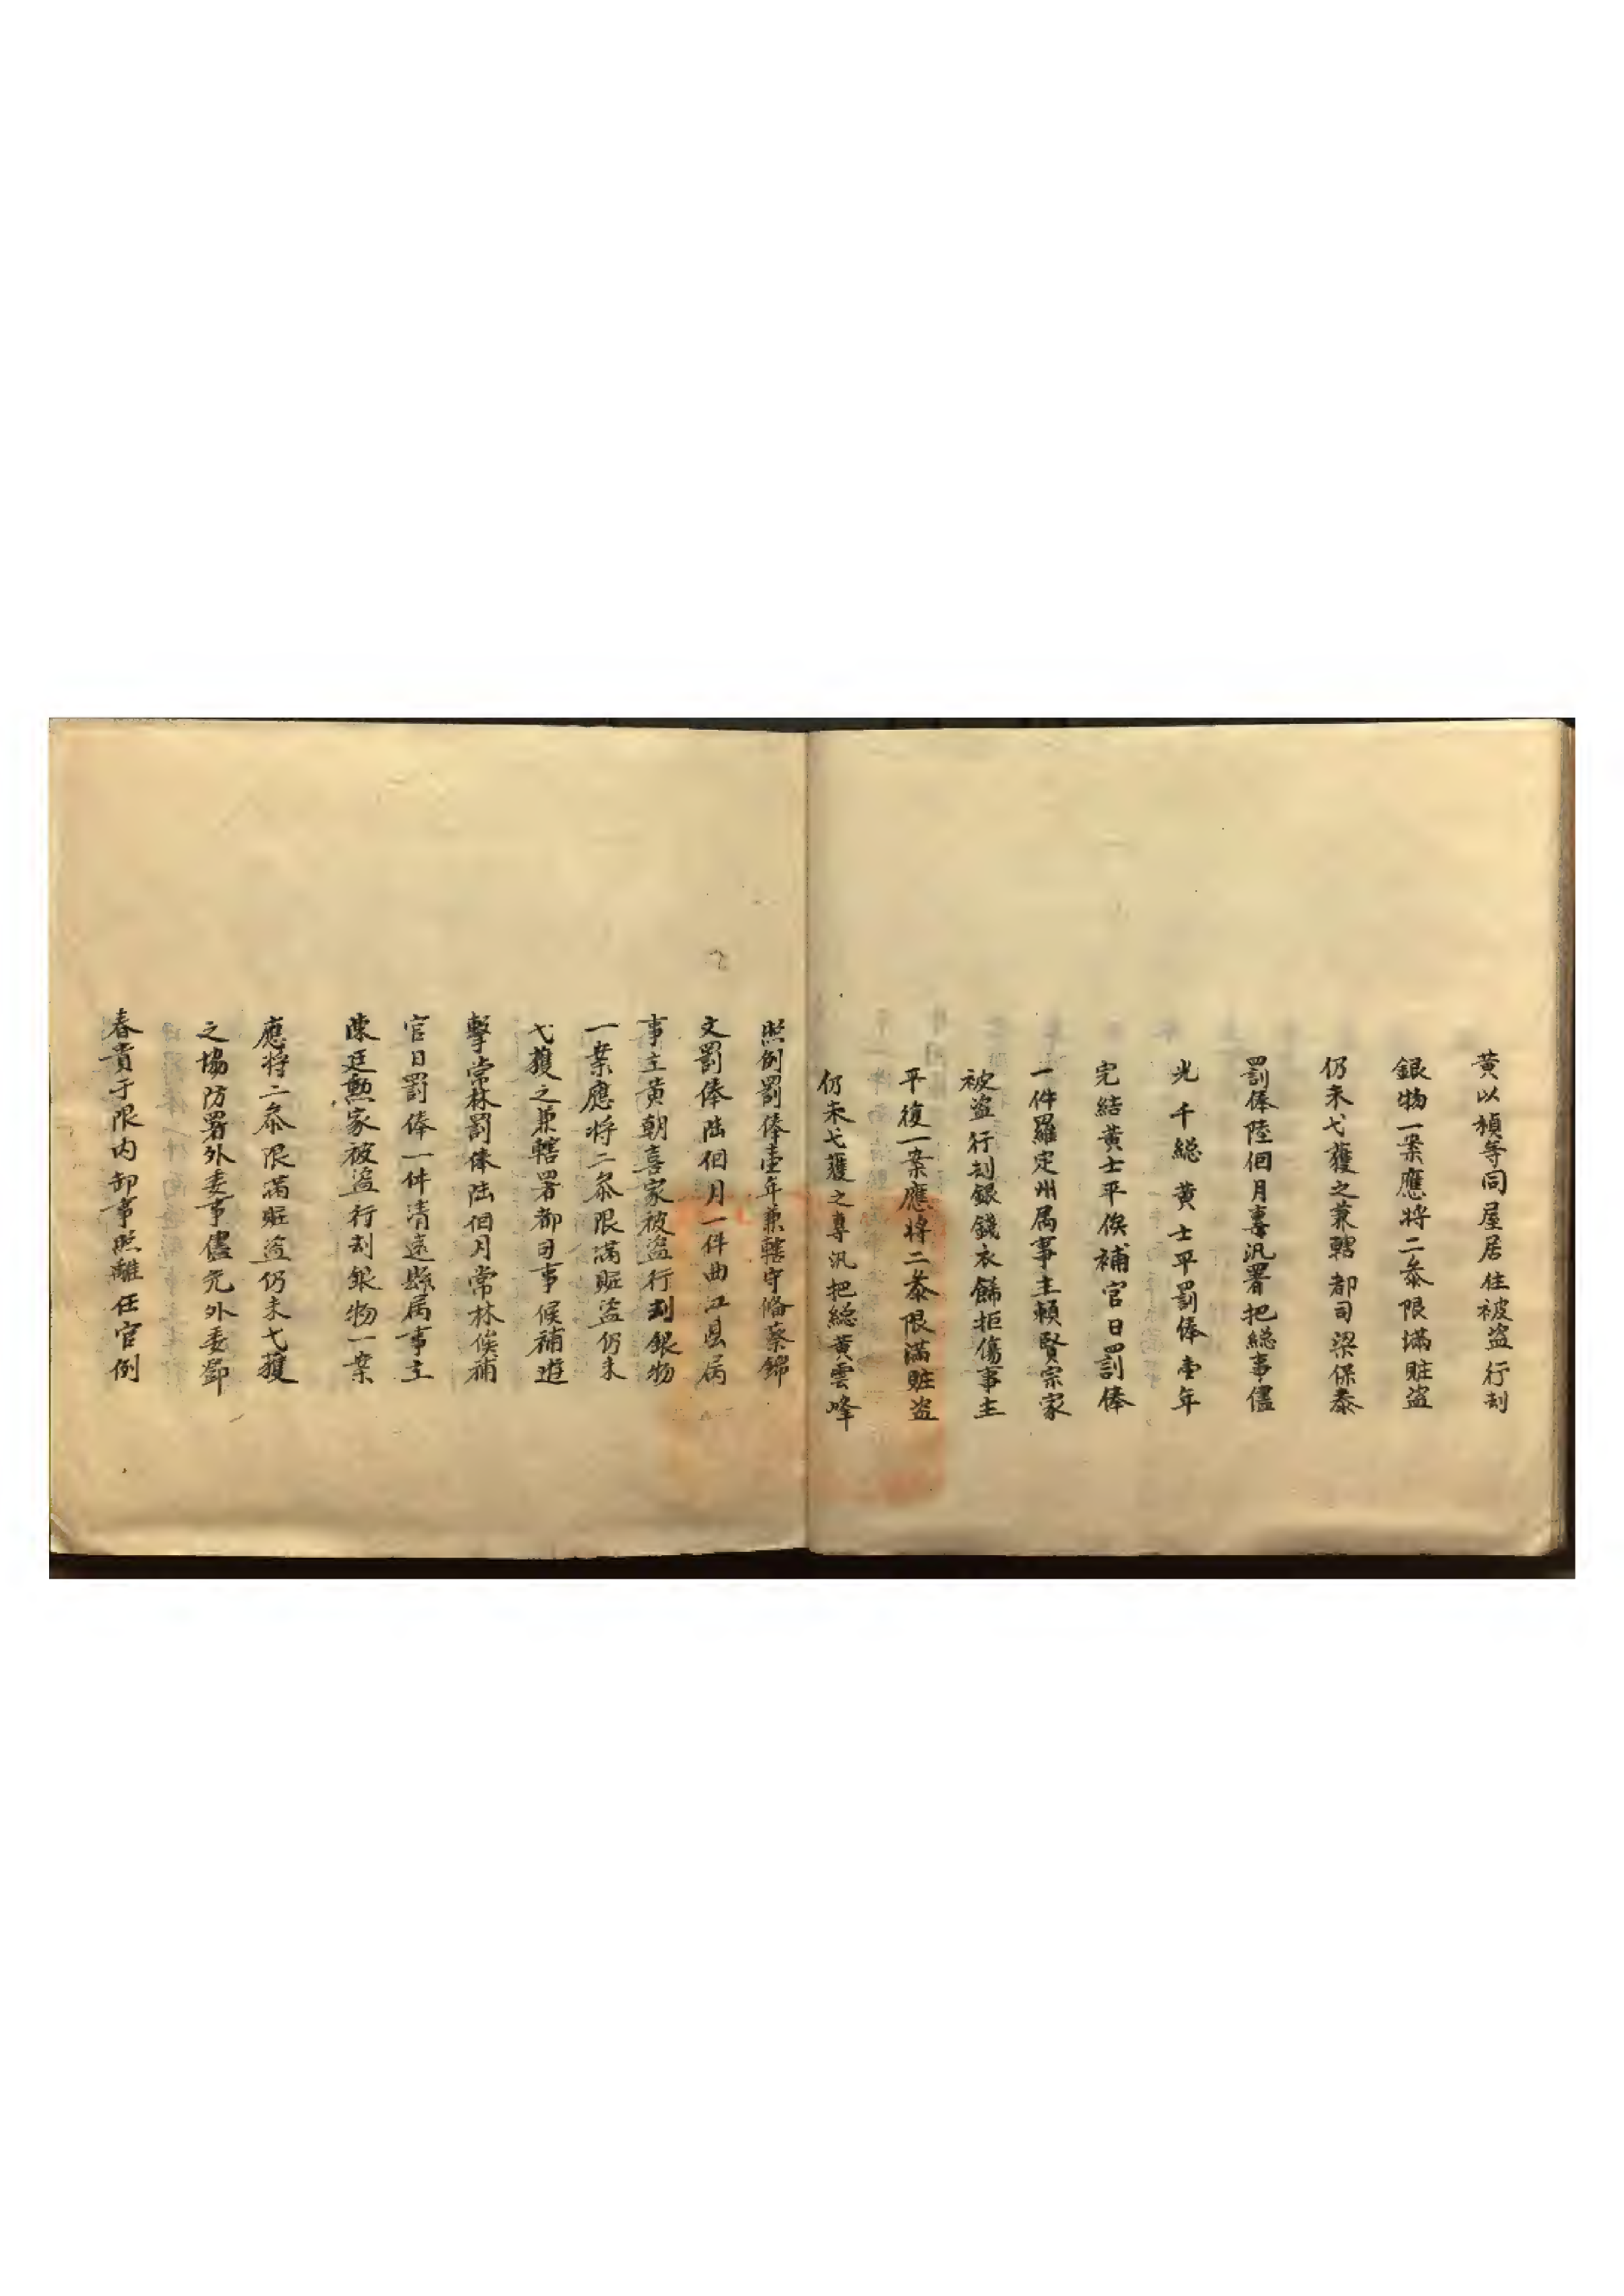 黄以楨等同屋居住被盗行刦
銀物一案應将二叅限滿賍盗
仍未弋獲之兼轄都司梁保泰
罰俸陸個月專汛署把総事儘
光千総黄士平罰俸壹年
完結黄士平俟補官日罰俸
一件羅定州属事主頼賢宗家
被盗行刦銀錢衣餙拒傷事主
平復一案應将二叅限滿賍盗
仍未弋獲之專汛把総黄雲峰
照例罰俸壹年兼轄守俻蔡錦
文罰俸陆個月一件曲江县属
事主黄朝喜家被盗行刦銀物
一案應将二叅限滿賍盗仍未
弋獲之兼轄署都司事候補遊
擊常林罰俸陆個月常林俟補
官日罰俸一件清遠縣属事主
陳廷勲家被盗行刦銀物一案
應将二叅限滿賍盗仍未弋獲
之協防署外委事儘先外委鄧
春貴于限内卸事照離任官例